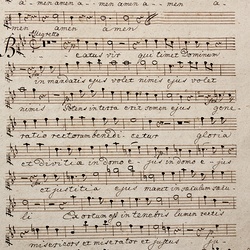 a- men amen a - men amen a - men a -
men amen a - men
Allegretto
Beatus vir qui timet Dominem
in mandatis ejus volet nimis ejus volet
nimis Potens in terra erit semen ejus gene-
ratio rectorum benedi - cetur gloria
et divitiæ in domo e - jus in domo e - jus
et justitia ejus manet in sæculum sæcu-
li Exortum est in tenebris lumen rectis
misericors et miserator et justus